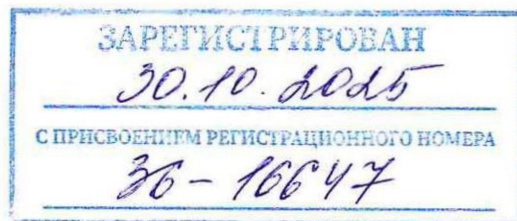 ЗАРЕГИСТРИРОВАН
30.10.2025
С ПРИСВОЕНИЕМ РЕГИСТРАЦИОННОГО НОМЕРА
36-16647